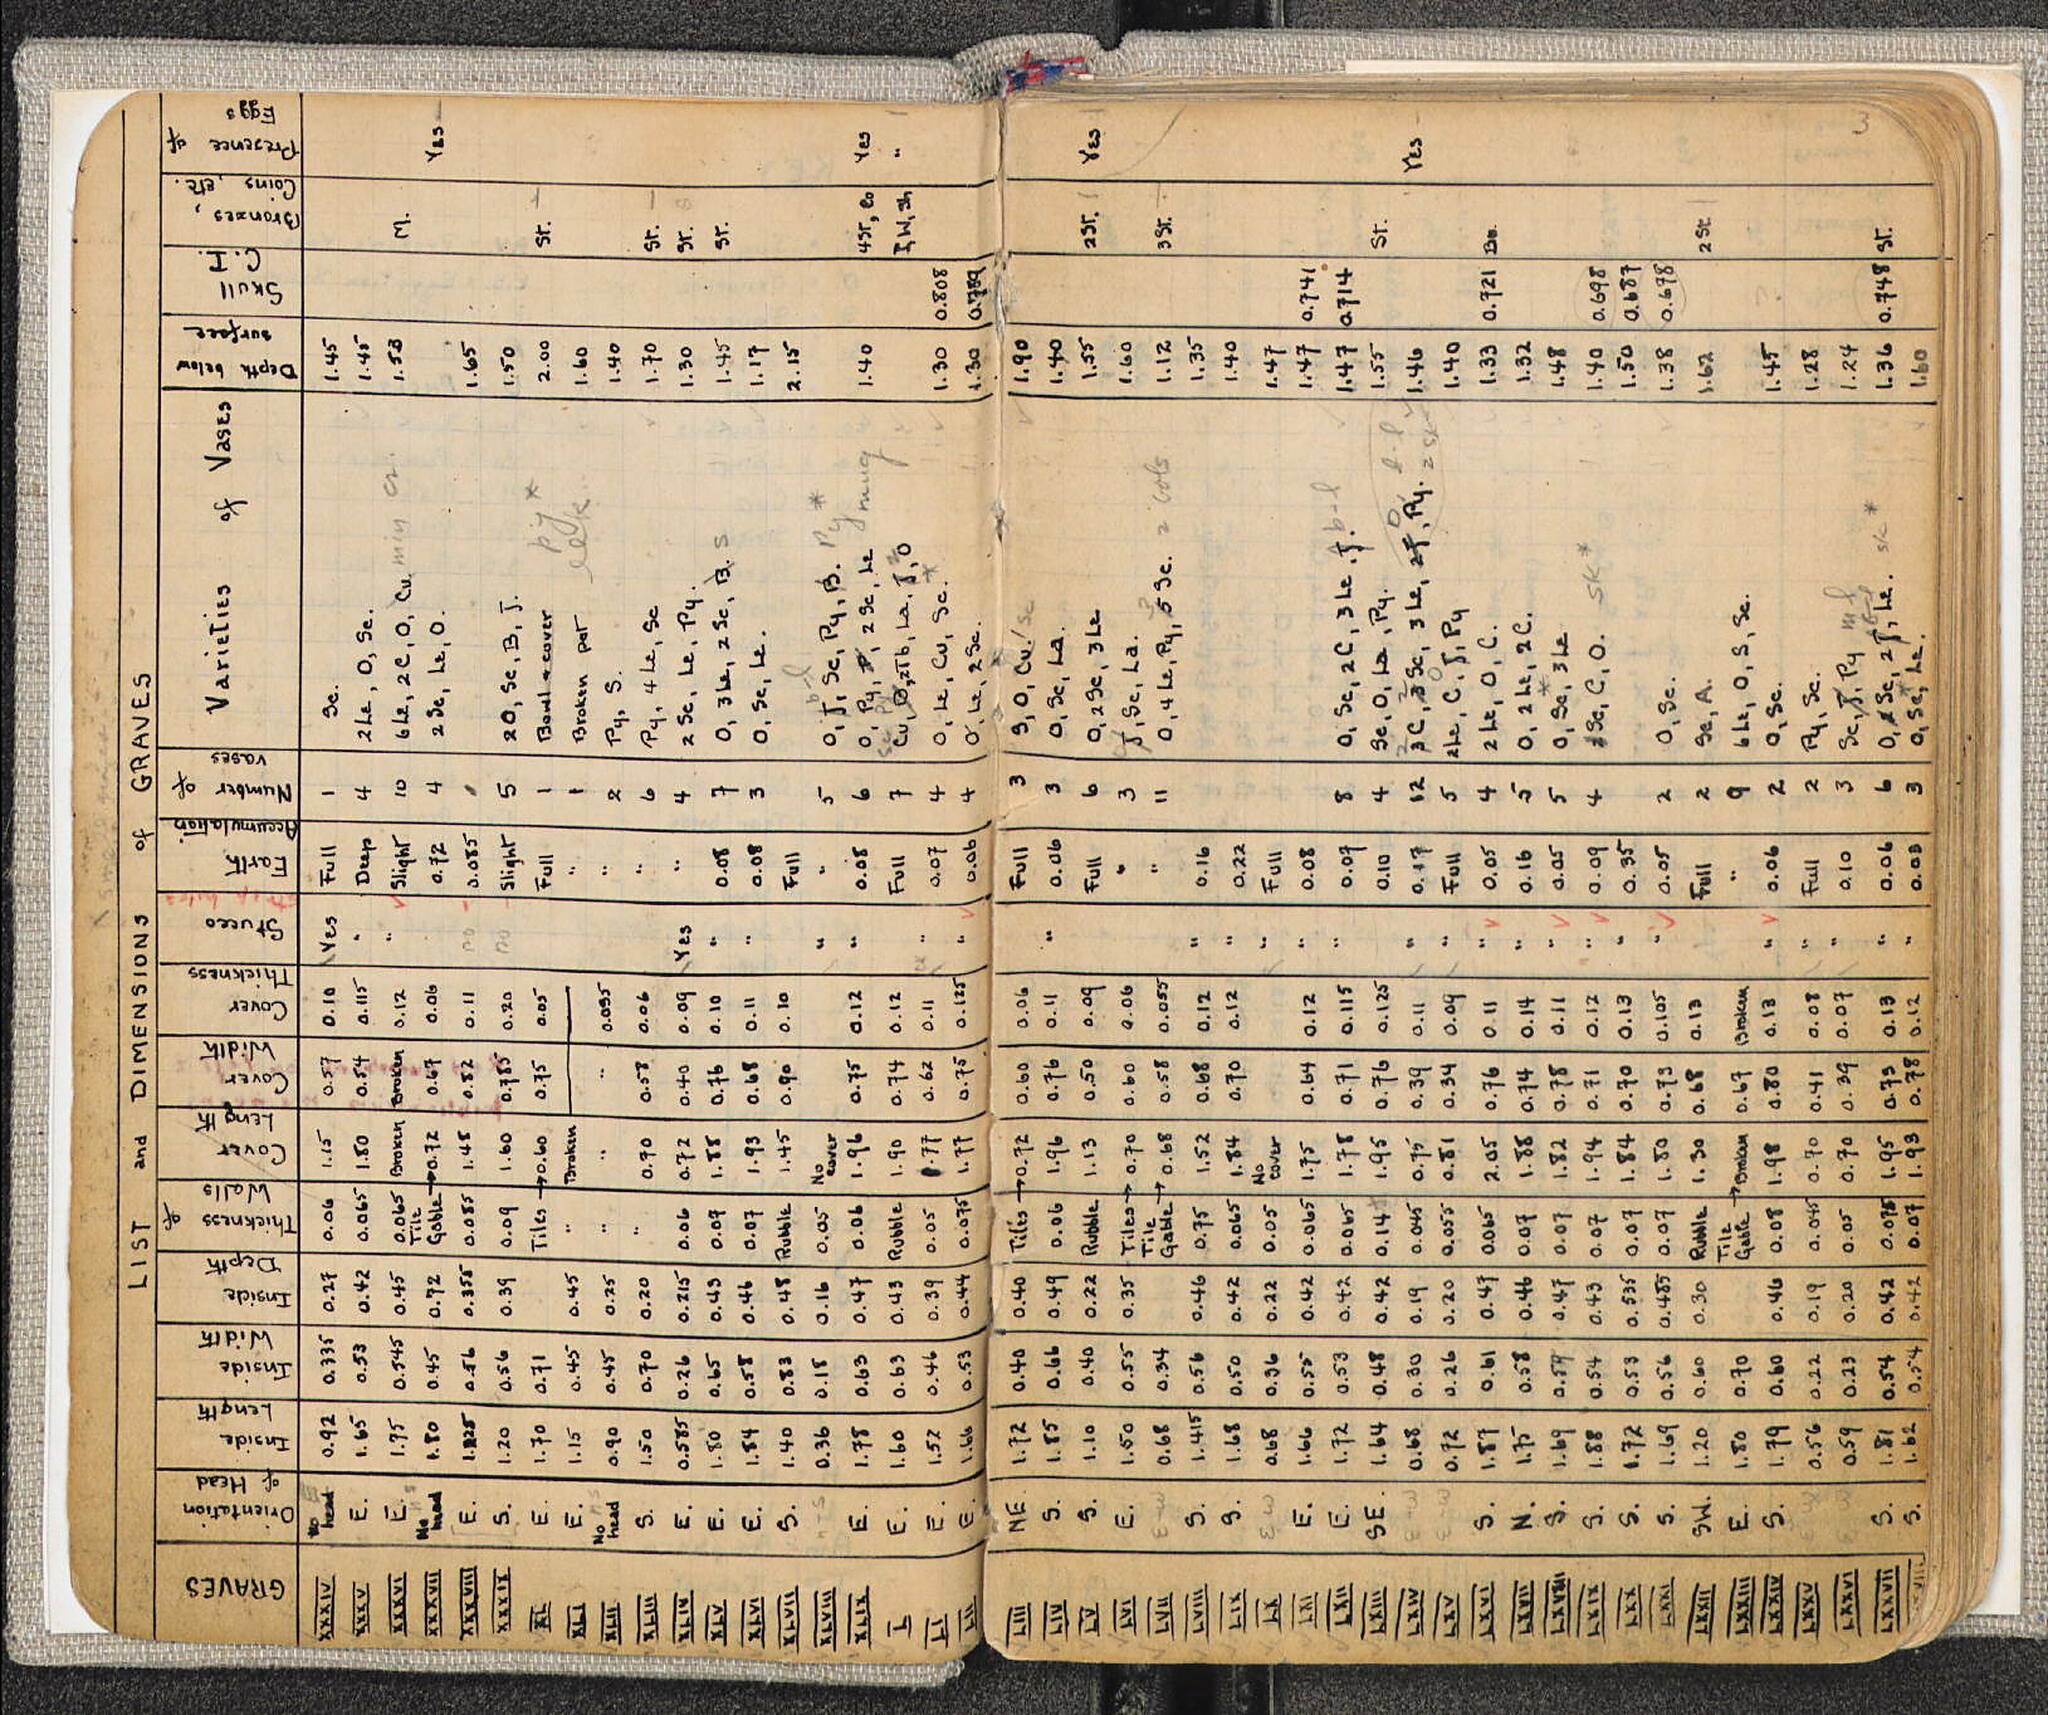 LIST and DIMENSIONS of GRAVES
GRAVES | Orientation of Head | Inside Length | Inside Width | Inside Depth | Thickness of Walls | Cover Length | Cover Width | Cover Thickness | Stucco | Earth Accumulation | Number of Vases | Varieties of Vases | Depth below surface | Skull C.I. | Bronzes, Coins, etc. | Presence of Eggs
XXXIV No head 0.92 0.335 0.27 0.06 1.15 0.57 0.10 Yes Full 1 Sc. 1.45
XXXV E. 1.65 0.53 0.42 0.065 1.80 0.54 0.115 " Deep 4 2 Le, O, Sc. 1.45
XXXVI E. 1.75 0.545 0.45 0.065 Broken Broken 0.12 " Slight 10 6 Le, 2 C, O, Cu. 1.53 M.
XXXVII No head 1.80 0.45 0.72 Tile Gable → 0.72 0.67 0.06 0.72 4 2 Sc, Le, O. Yes
XXXVIII E. 0.56 0.355 0.085 1.48 0.82 0.11 no 0.085 1.65
XXXIX S. 1.20 0.56 0.39 0.09 1.60 0.785 0.20 no Slight 5 2 O, Sc, B, J. 1.50
XL E. 1.70 0.71 Tiles → 0.60 0.75 0.05 Full 1 Bowl + cover 2.00 St.
XLI E. 1.15 0.45 0.45 " Broken " 1 Broken pot 1.60
XLII No head 0.90 0.45 0.25 " " " 0.095 " 2 Py, S. 1.40
XLIII S. 1.50 0.70 0.20 " 0.70 0.58 0.06 " 6 Py, 4 Le, Sc 1.70 St.
XLIV E. 0.585 0.26 0.215 0.06 0.72 0.40 0.09 Yes " 4 2 Sc, Le, Py. 1.30 St.
XLV E. 1.80 0.65 0.43 0.09 1.88 0.76 0.10 " 0.08 7 O, 3 Le, 2 Sc, B. S 1.45 St.
XLVI E. 1.84 0.58 0.46 0.07 1.93 0.68 0.11 " 0.08 3 O, Sc, Le. 1.17
XLVII S. 1.40 0.83 0.48 Rubble 1.45 0.90 0.10 Full 2.15
XLVIII n-s 0.36 0.18 0.16 0.05 No cover " " 5 O, J, Sc, Py, B. Py *
XLIX E. 1.78 0.63 0.47 0.06 1.96 0.75 0.12 " 0.08 6 O, Py, 2 Sc, Le mug 1.40 4 St, Co Yes
L E. 1.60 0.63 0.43 Rubble 1.90 0.74 0.12 Full 7 Cu, 2 Tb, La, J, O "
LI E. 1.52 0.46 0.39 0.05 1.77 0.62 0.11 " 0.07 4 O, Le, Cu, Sc. * 1.30 0.808
LII E. 1.66 0.53 0.44 0.075 1.77 0.75 0.125 " 0.06 4 O, Le, 2 Sc. 1.30
LIII NE. 1.72 0.40 0.40 Tiles → 0.72 0.60 0.06 Full 3 O, Cu 1.90
LIV S. 1.85 0.66 0.49 0.06 1.96 0.76 0.11 " 0.06 3 O, Sc, La. 1.40
LV S. 1.10 0.40 0.22 Rubble 1.13 0.50 0.09 Full 6 O, 2 Sc, 3 Le 1.55 2 St. Yes
LVI E. 1.50 0.55 0.35 Tiles → 0.70 0.60 0.06 " 3 J, Sc, La. 1.60
LVII E-W 0.68 0.34 Tile Gable → 0.68 0.58 0.055 " 11 O, 4 Le, Py, 5 Sc. 1.12 3 St.
LVIII S. 1.415 0.56 0.46 0.75 1.52 0.68 0.12 " 0.16 1.35
LIX S. 1.68 0.50 0.42 0.065 1.84 0.70 0.12 " 0.22 1.40
LX E-W 0.68 0.36 0.22 0.05 No cover " Full 1.47
LXI E. 1.66 0.55 0.42 0.065 1.75 0.64 0.12 " 0.08 1.47 0.741
LXII E. 1.72 0.53 0.42 0.065 1.78 0.71 0.115 " 0.09 8 O, Sc, 2 C, 3 Le, J. b-l 1.47 0.714
LXIII SE. 1.64 0.48 0.42 0.14 1.95 0.76 0.125 0.10 4 Sc, O, La, Py. 1.55 St.
LXIV E-W 0.68 0.30 0.19 0.045 0.75 0.39 0.11 " 0.17 12 3 C, 3 Sc, 3 Le, 2 J, Py. 1.46 Yes
LXV E-W 0.72 0.26 0.20 0.055 0.81 0.34 0.09 " Full 5 2 Le, C, J, Py 1.40
LXVI S. 1.87 0.61 0.47 0.065 2.05 0.76 0.11 " 0.05 4 2 Le, O, C. 1.33 0.721 Bo.
LXVII N. 1.75 0.58 0.46 0.07 1.88 0.74 0.14 " 0.16 5 O, 2 Le, 2 C. 1.32
LXVIII S. 1.69 0.59 0.47 0.07 1.82 0.78 0.11 " 0.05 5 O, Sc, 3 Le 1.48
LXIX S. 1.88 0.54 0.43 0.07 1.94 0.71 0.12 " 0.09 4 Sc, C, O. SK * 1.40 0.698
LXX S. 1.72 0.53 0.535 0.07 1.84 0.70 0.13 " 0.35 1.50 0.687
LXXI S. 1.69 0.56 0.485 0.07 1.80 0.73 0.105 " 0.05 2 O, Sc. 1.38 0.678
LXXII SW. 1.20 0.60 0.30 Rubble 1.30 0.68 0.13 Full 2 Sc, A. 1.62 2 St.
LXXIII E. 1.80 0.70 Tile Gable → Broken 0.67 Broken " 9 6 Le, O, S, Sc.
LXXIV S. 1.79 0.60 0.46 0.08 1.98 0.80 0.13 " 0.06 2 O, Sc. 1.45
LXXV E-W 0.56 0.22 0.19 0.045 0.70 0.41 0.08 " Full 2 Py, Sc. 1.28
LXXVI E-W 0.59 0.23 0.20 0.05 0.70 0.39 0.07 " 0.10 3 Sc, J, Py 1.24
LXXVII S. 1.81 0.54 0.42 0.075 1.95 0.73 0.13 " 0.06 6 O, Sc, 2 J, Le. sk * 1.36 0.748 St.
S. 1.62 0.54 0.42 0.07 1.93 0.78 0.12 " 0.03 3 O, Sc, Le. 1.60
3